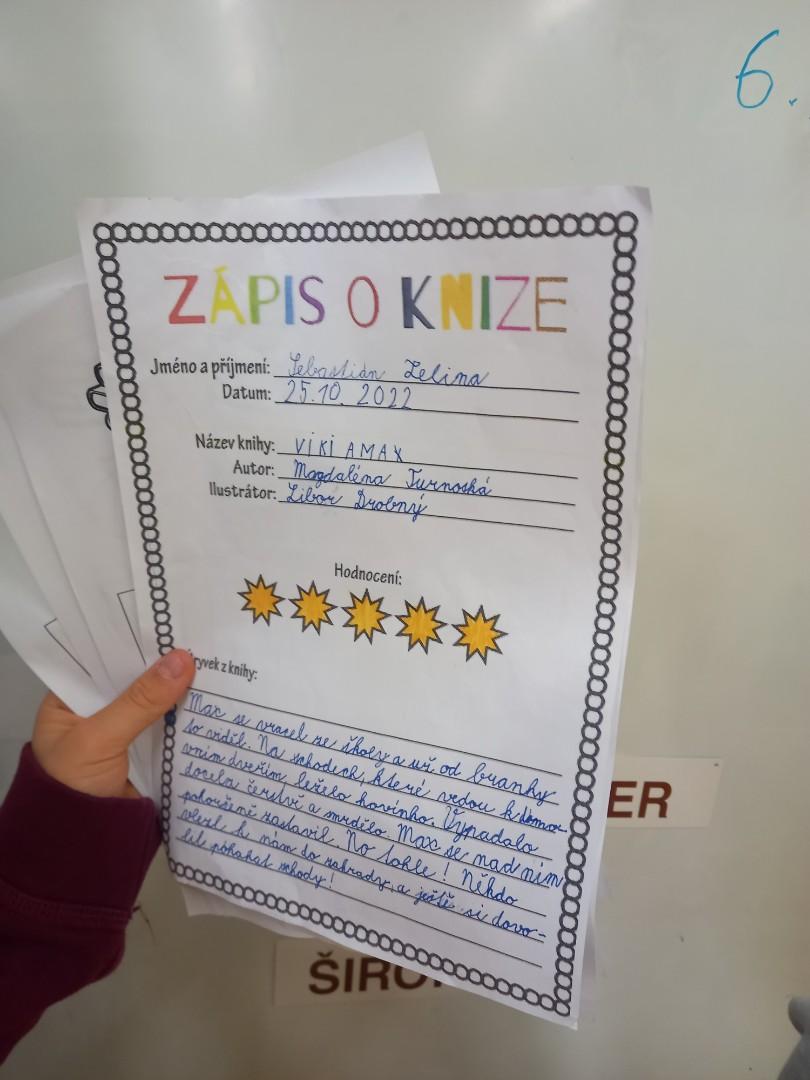 6.
ZÁPIS O KNIZE
Jméno a příjmení: Sebastián Zelina
Datum: 25.10.2022
Název knihy: VIKI A MAX
Autor: Magdaléna Turnoská
Ilustrátor: Libor Drobný
Hodnocení:
ryvek z knihy:
Max se vracel ze školy a už od branky
to viděl. Na schodech, které vedou k domov-
vním dveřím leželo hovínko. Vypadalo
docela čerstvě a smrdělo. Max se nad ním
pohoršeně zastavil. No tohle! Někdo
vlezl k nám do zahrady, a ještě si dovo-
lil pokakat schody!
ER
ŠIRO